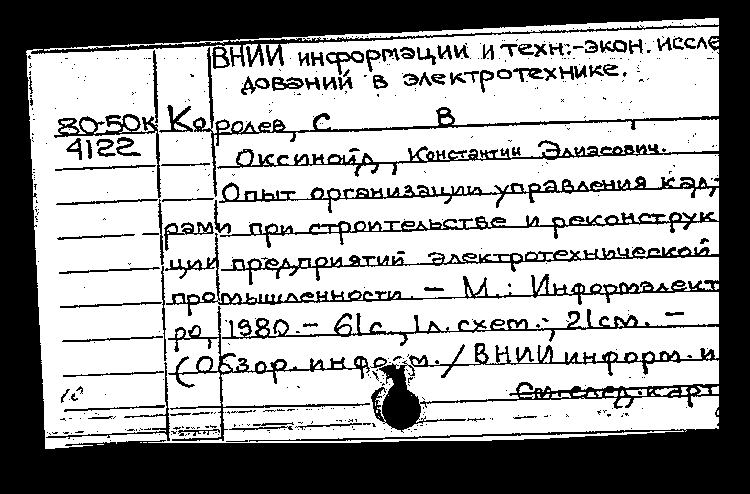 ВНИИ информации и техн.-экон. иссле
дований в электротехнике.
80-50к Королев, С В
4122
Оксиноид, Константин Элиасович.
Опыт организации управления кад-
рами при строительстве и реконструк
ции предприятий электротехнической
промышленности. – М.: Информэлект
ро, 1980. – 61с., 1л. схем.; 21см. –
(Обзор. информ. / ВНИИ информ. и
10 См. след. карт